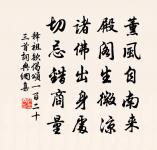 薰風自南來
殿閣生微涼
諸佛出身處
切忌錯商量
釋祖欽偈頌一百二十
三首詞典網集